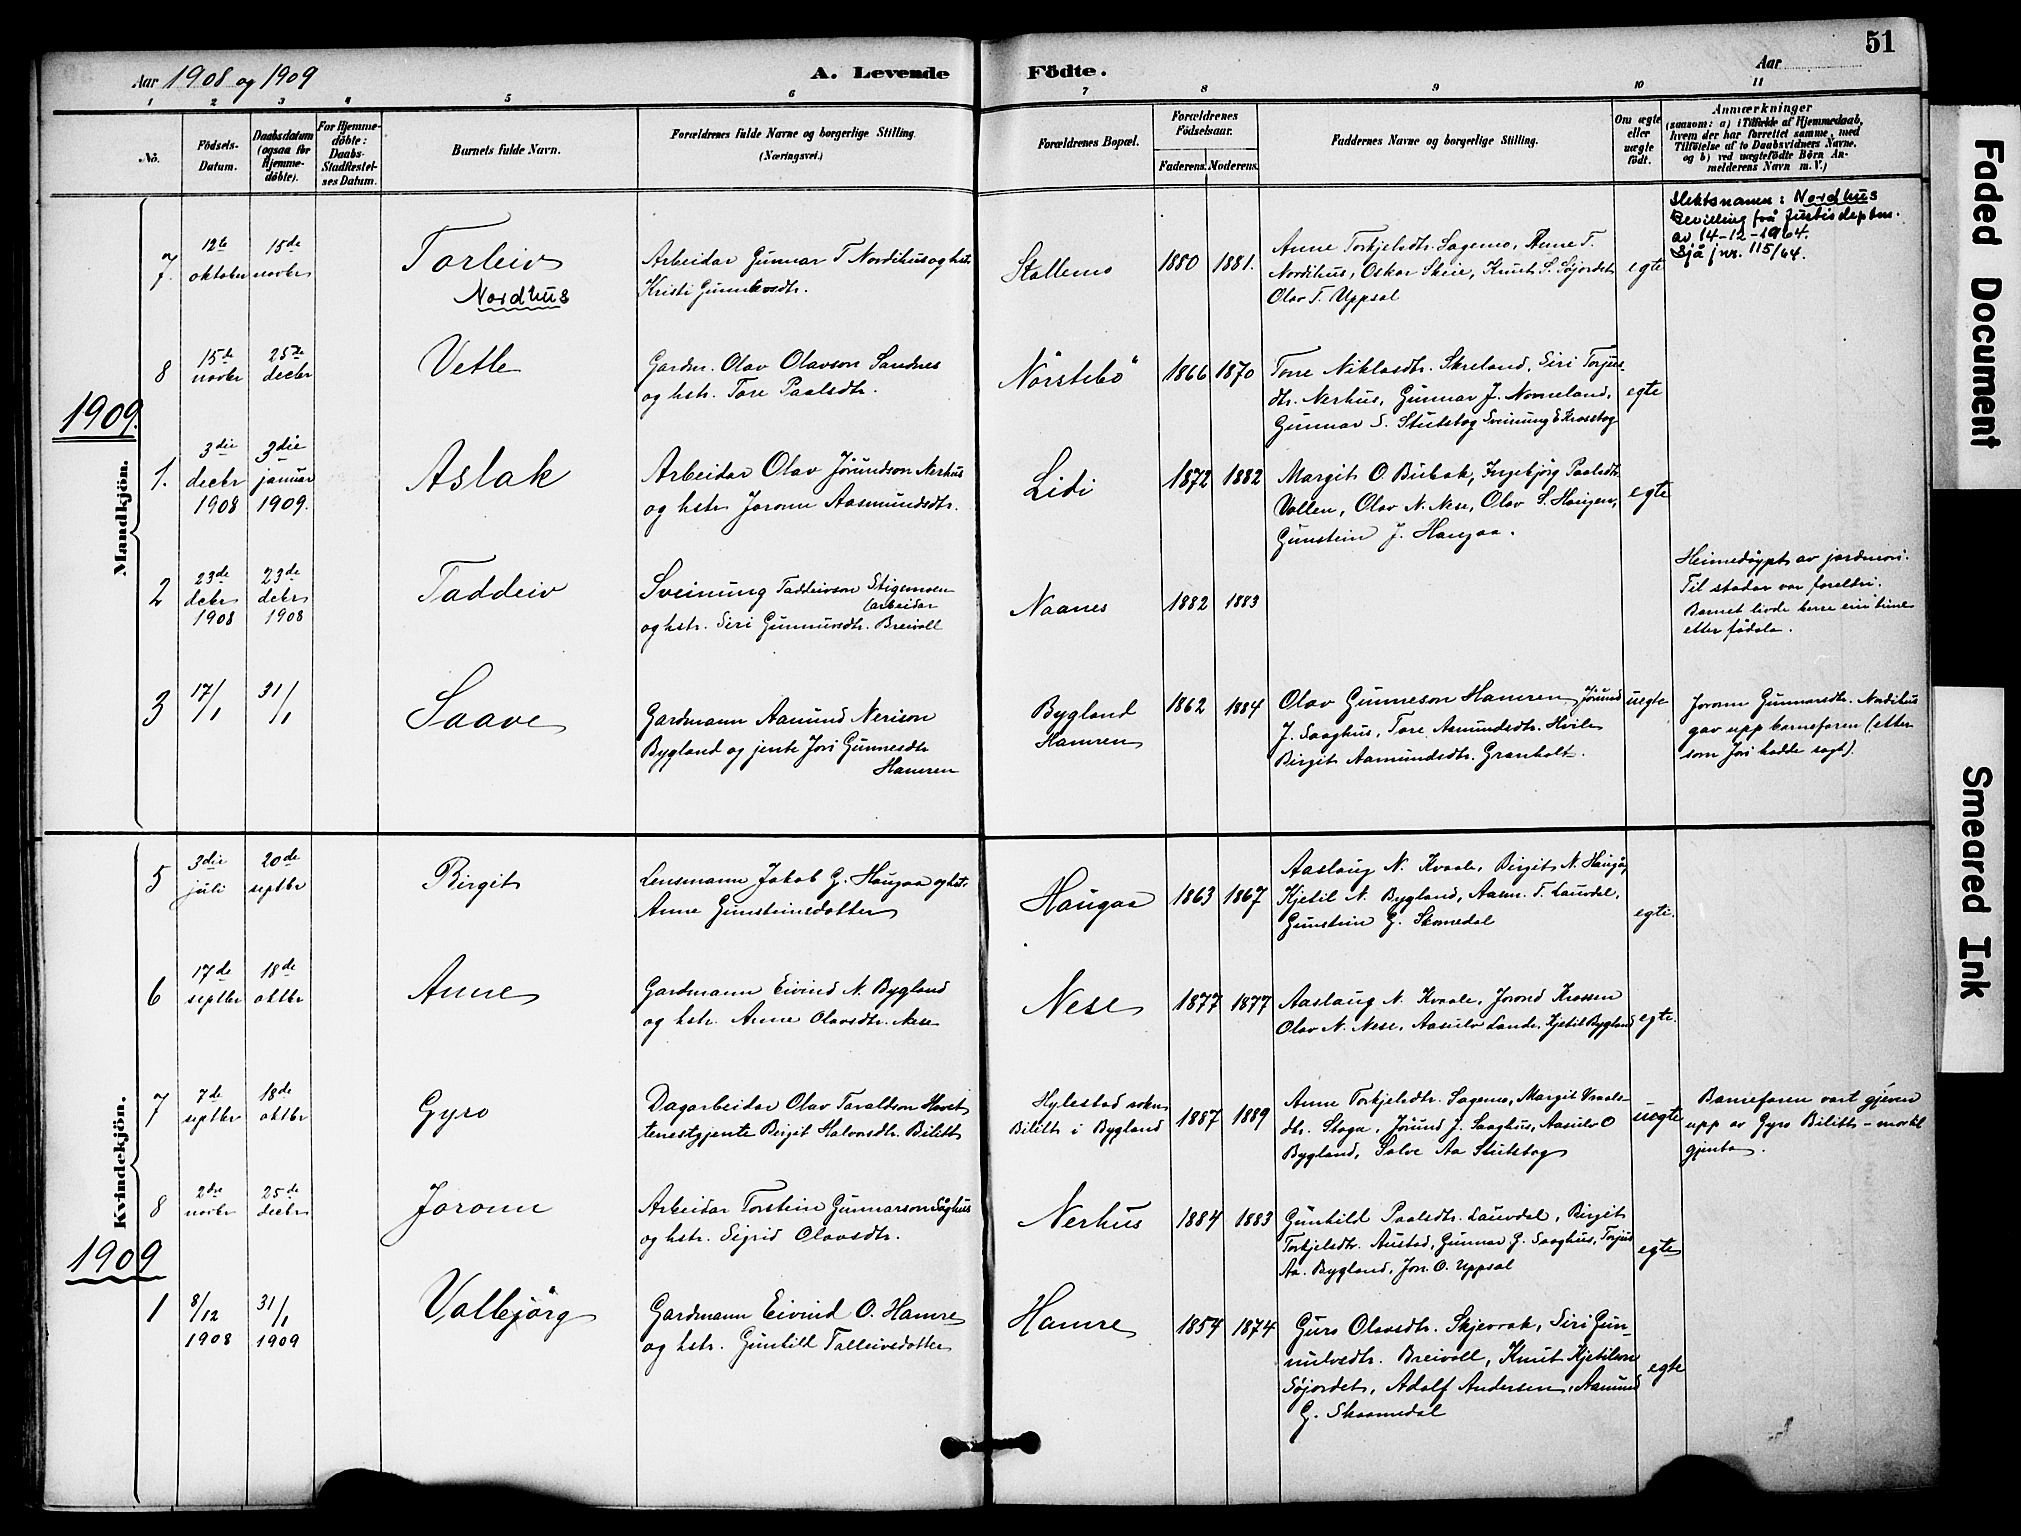 51
Aar 1908 og 1909
A. Levende Födte.
Aar
1 2 3 4 5 6 7 8 9 10 11
No.
Födsels-Datum.
Daabsdatum (ogsaa for Hjemme-döbte).
For Hjemme-döbte: Daabs-Stadfæstel-ses Datum.
Barnets fulde Navn.
Forældrenes fulde Navne og borgerlige Stilling.
(Næringsvei.)
Forældrenes Bopæl.
Forældrenes Födselsaar.
Faderens. Moderens.
Faddernes Navne og borgerlige Stilling.
Om ægte eller uægte födt.
Anmærkninger
(saasom: a) i Tilfælde af Hjemmedaab,
hvem der har forrettet samme, med
Tilföielse af to Daabsvidners Navne,
og b) ved uægtefödte Börn An-
melderens Navn m. V.)
Mandkjön.
7. 12te oktober 15de novbr
Torleiv
Nordhus
Arbeidar Gunnar T Nordihus og hstr
Kristi
Stallemo
1880 1881.
Anne Torkjelsdtr. Sagemo, Anne T.
Nordihus, Oskar Skeie, Knut S. Søjordet
Olav T. Uppsal
egte
Slektsnamn: Nordhus
Bevilling frå Justisdeptm.
av 14-12-1964.
Sjå jnr. 115/64.
8 15de novbr 25de decbr
Vetle
Gardm. Olav Olavson Sandnes
og hstr. Tore Paalsdtr.
Nörstebö
1866 1870
Tone Niklasdtr. Skreland, Siri Torjus-
dtr. Nerhus, Gunnar J. Nomeland,
Gunnar S. Stutehog Sveinung
egte
1909.
1. 3die decbr 1908 3die januar 1909.
Aslak
Arbeidar Olav Jörundson Nerhus
og hstr Joronn Aasmundsdtr.
Lidi
1872 1882
Margit O. Bubak, Ingebjörg Paalsdtr
Vallen, Olav N. Nese, Olav S. Haugen,
Gunstein J. Haugaa.
egte
2 23de decbr 1908 23de decbr 1908
Taddeiv
Sveinung Taddeivson Stigemoen
(arbeidar
og hstr. Siri Gunnulvsdtr. Breivoll
Naanes
1882 1883
Heimedøypt av jordmori.
Til stadar var foreldri.
Barnet livde berre ein time
etter födsla.
3 17/1 31/1
Saave
Gardmann Aamund Nerison
Bygland og jente Jori Gunnesdtr
Hamren
Bygland
Hamren
1862 1884
Olav Gunneson Hamren Jörund
J. Saaghus, Tore Aamundsdtr. Hvile
Birgit Aamundsdtr. Granholt.
uegte
Joronn Gunnarsdtr. Nordihus
gav upp barnefaren (etter
som Jori hadde sagt).
Kvindekjön.
5 3die juli 20de septbr
Birgit
Lensmann Jakob G. Haugaa og hstr
Anne Gunsteinsdotter
Haugaa
1863 1867
Aaslaug N. Kvaale, Birgit N. Haugå,
Kjetil N. Bygland, Aasm. T. Lauvdal,
Gunstein G. Skomedal
egte.
6 17de septbr 18de oktbr
Anne
Gardmann Eivind N. Bygland
og hstr. Anne Olavsdtr. Nese
Nese
1877 1877
Aaslaug N. Kvaale, Jorond Krossen
Olav N. Nese, Aasulv Lande, Kjetil Bygland
egte.
7 7de septbr 18de oktbr
Gyro
Dagarbeidar Olav Taraldson
tenestgjente Birgit Halvorsdtr. Bilitt
Hylestad sokn
Bilitt i Bygland
1887 1889
Anne Torkjelsdtr. Sagemo, Margit
dtr. Stoga, Jörund J. Saaghus, Aasulv O
Bygland, Salve Aa Stutehog
uegte
Barnefaren vart gjeven
upp av Gyro Bilitt -
gjenta.
8 2dre novbr 25de decbr
Joronn
Arbeidar Torstein Gunnarson Såghus
og hstr. Sigrid Olavsdtr.
Nerhus
1884 1883
Gunhild Paalsdtr. Lauvdal, Birgit
Torkjelsdtr. Austad, Gunnar G. Saaghus, Torjus
Aa. Bygland, Jon. O. Uppsal
egte
1909
1 8/12 1908 31/1 1909
Valbjörg
Gardmann Eivind O. Hamre
og hstr. Gunhild Talleivsdotter
Hamre
1854 1874
Guro Olavsdtr. Skjevrak, Siri Gun-
nulvsdtr. Breivoll, Knut Kjetilson
Søjordet, Adolf Andersen, Aamund
G. Skaamedal
egte
Faded Document
Smeared Ink